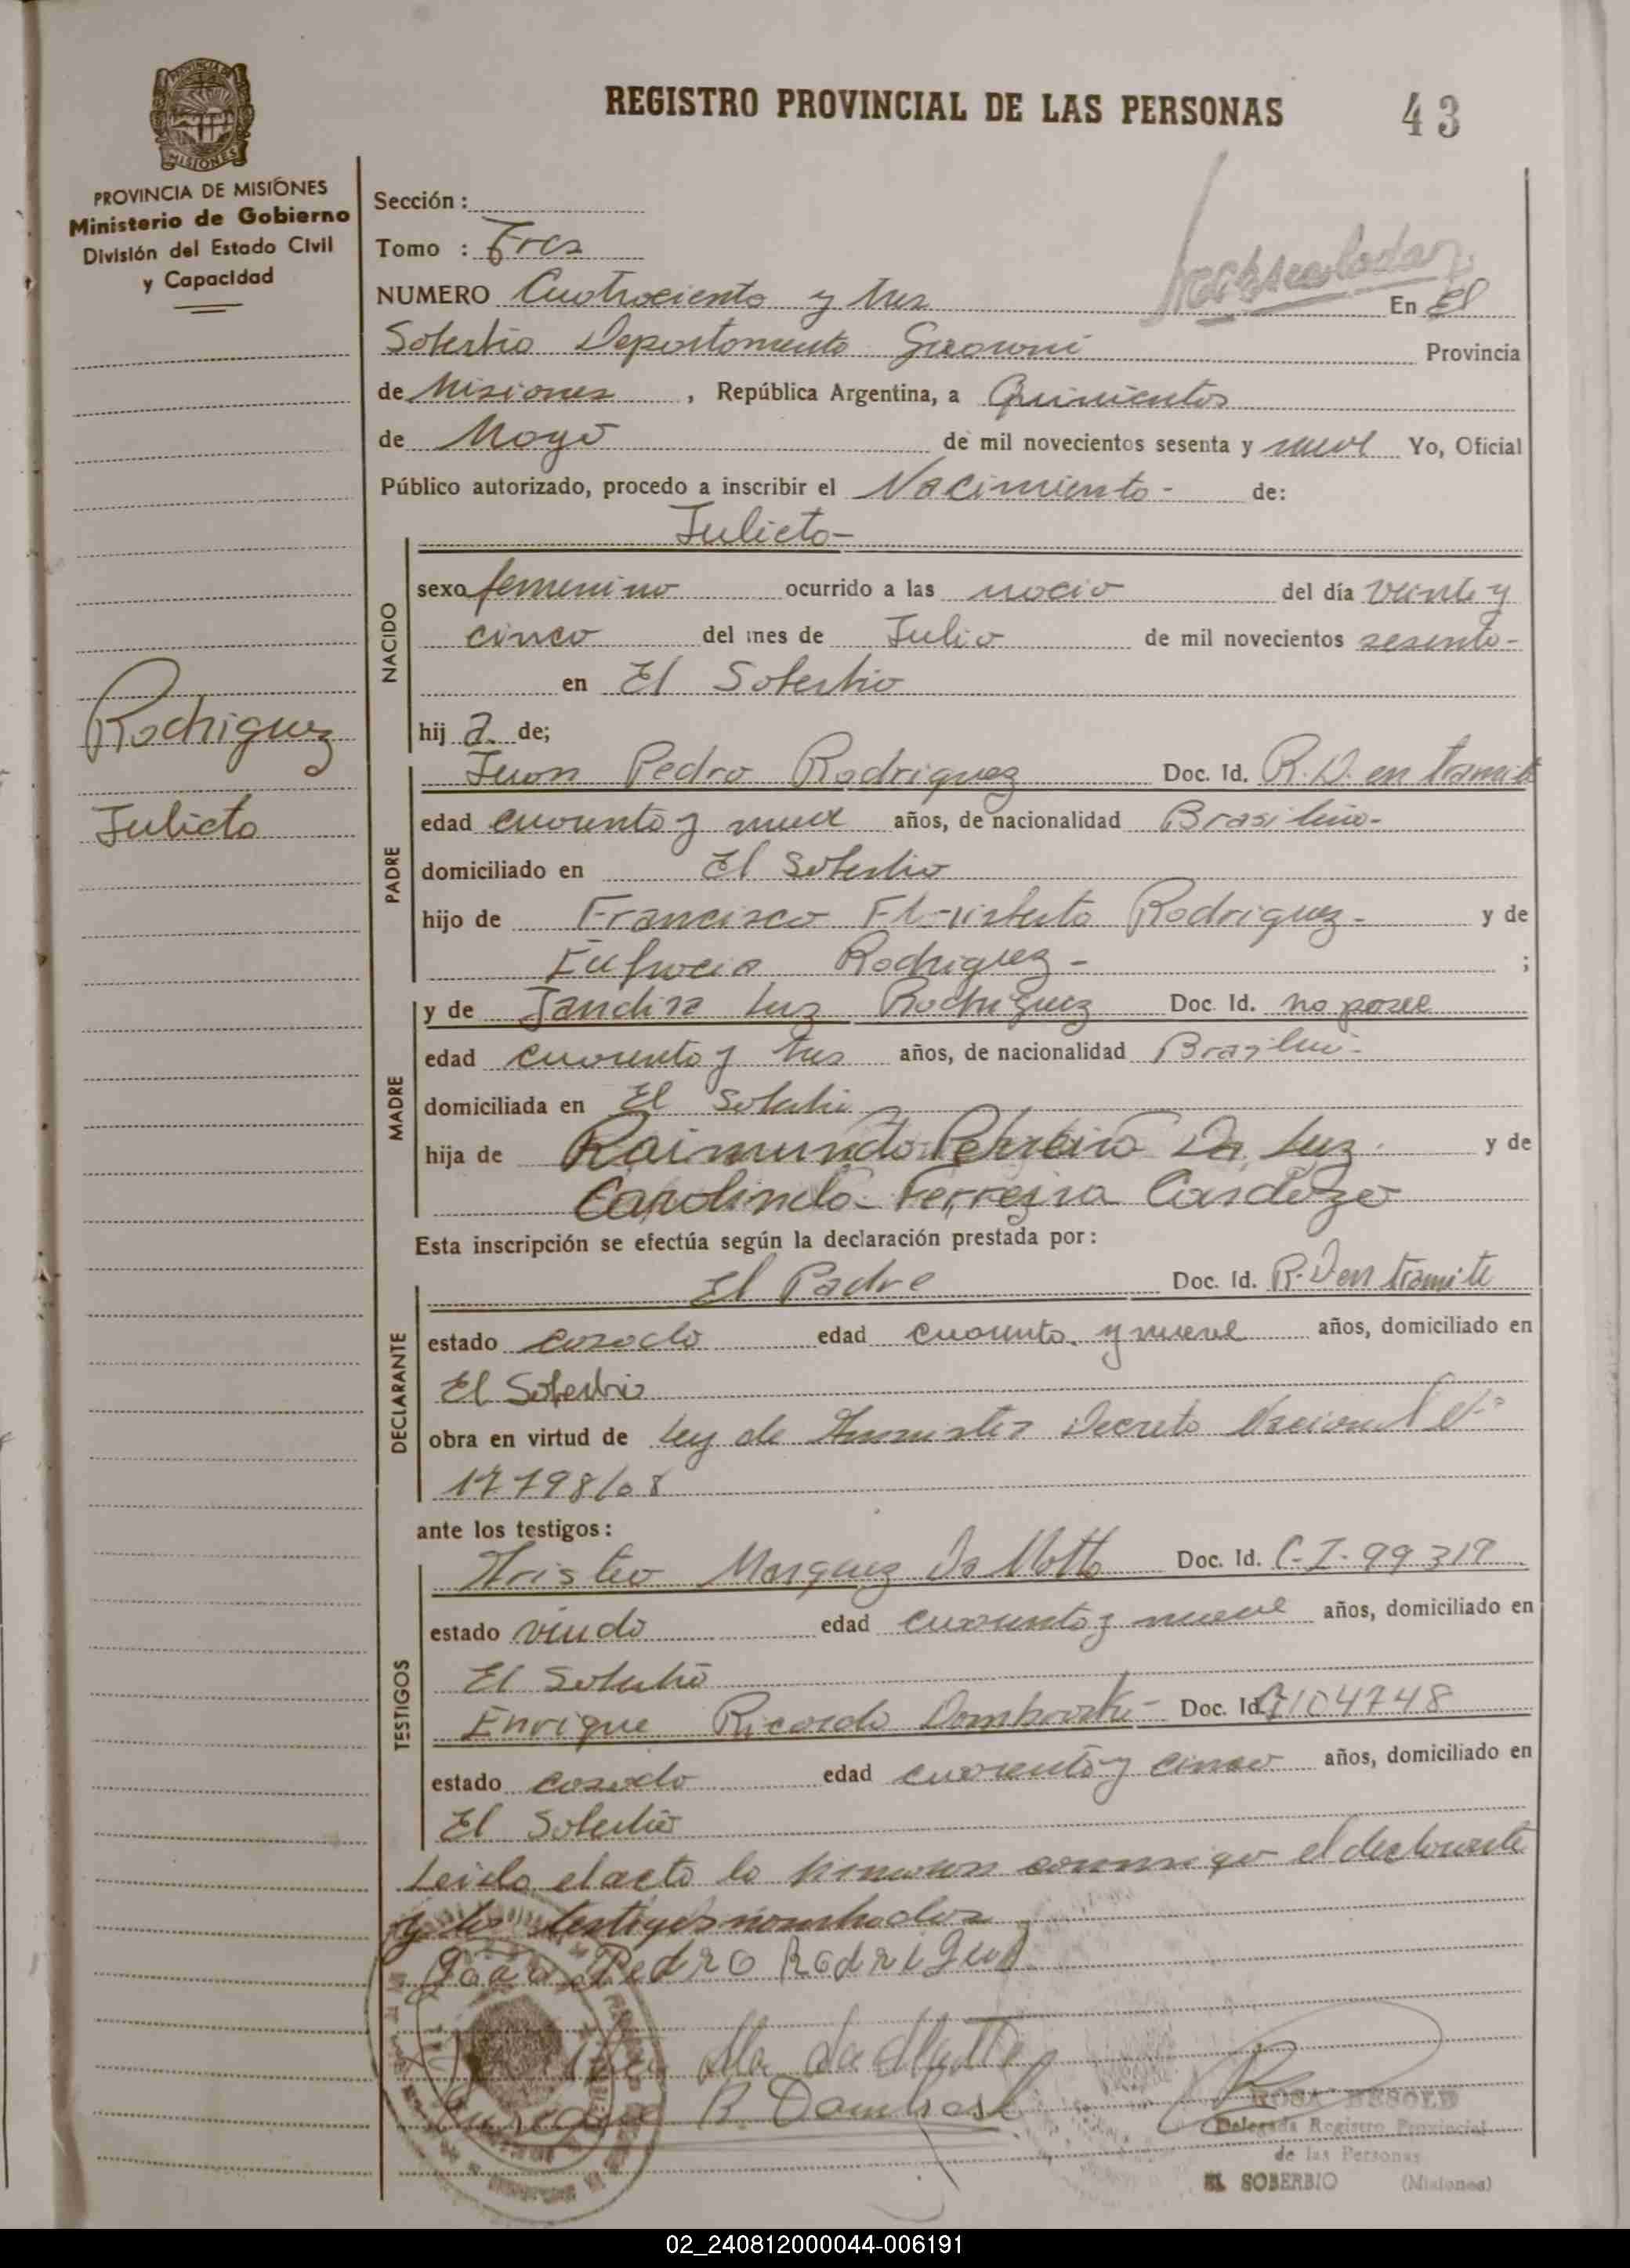 REGISTRO PROVINCIAL DE LAS PERSONAS
43
PROVINCIA DE MISIONES
MISIONES
PROVINCIA DE MISIONES
Ministerio de Gobierno
División del Estado Civil
y Capacidad
Sección :
Tomo : Tres
NUMERO Cuatrociento y tres En El
Soberbio Departamento Guarani Provincia
de Misiones , República Argentina, a
de Mayo de mil novecientos sesenta y nueve Yo, Oficial
Público autorizado, procedo a inscribir el Nacimiento - de:
Julieta -
NACIDO
sexo femenino ocurrido a las del día veinte y
cinco del mes de Julio de mil novecientos sesenta -
en El Soberbio
hij a de;
Rodriguez
Julieta
PADRE
Juan Pedro Rodriguez Doc. Id. R.D. en tramite
edad cuarenta y nueve años, de nacionalidad Brasileña -
domiciliado en El Soberbio
hijo de Francisco Rodriguez - y de
Eufracia Rodriguez - ;
MADRE
y de Jandira Luz Rodriguez Doc. Id. no posee
edad cuarenta y tres años, de nacionalidad Brasileña -
domiciliada en El Soberbio
hija de Raimundo Perreira Da Luz y de
Carolinda Ferreira Cardozo
Esta inscripción se efectúa según la declaración prestada por :
DECLARANTE
El Padre Doc. Id. R.D en tramite
estado casado edad cuarenta y nueve años, domiciliado en
El Soberbio
obra en virtud de Ley de Amnistia Decreto Nacional Nº
17798/68
ante los testigos :
TESTIGOS
Aristeo Marquez Da Motta Doc. Id. C.I. 99319
estado viudo edad cuarenta y nueve años, domiciliado en
El Soberbio
Enrique Ricardo Doc. Id. 7104748
estado casado edad cuarenta y cinco años, domiciliado en
El Soberbio
Leida el acta la firmaron conmigo el declarante
y los testigos nombrados
João Pedro Rodrigues
da Motta
Enrique R.
ROSA BESOLD
Delegada Registro Provincial
de las Personas
EL SOBERBIO (Misiones)
02_240812000044-006191